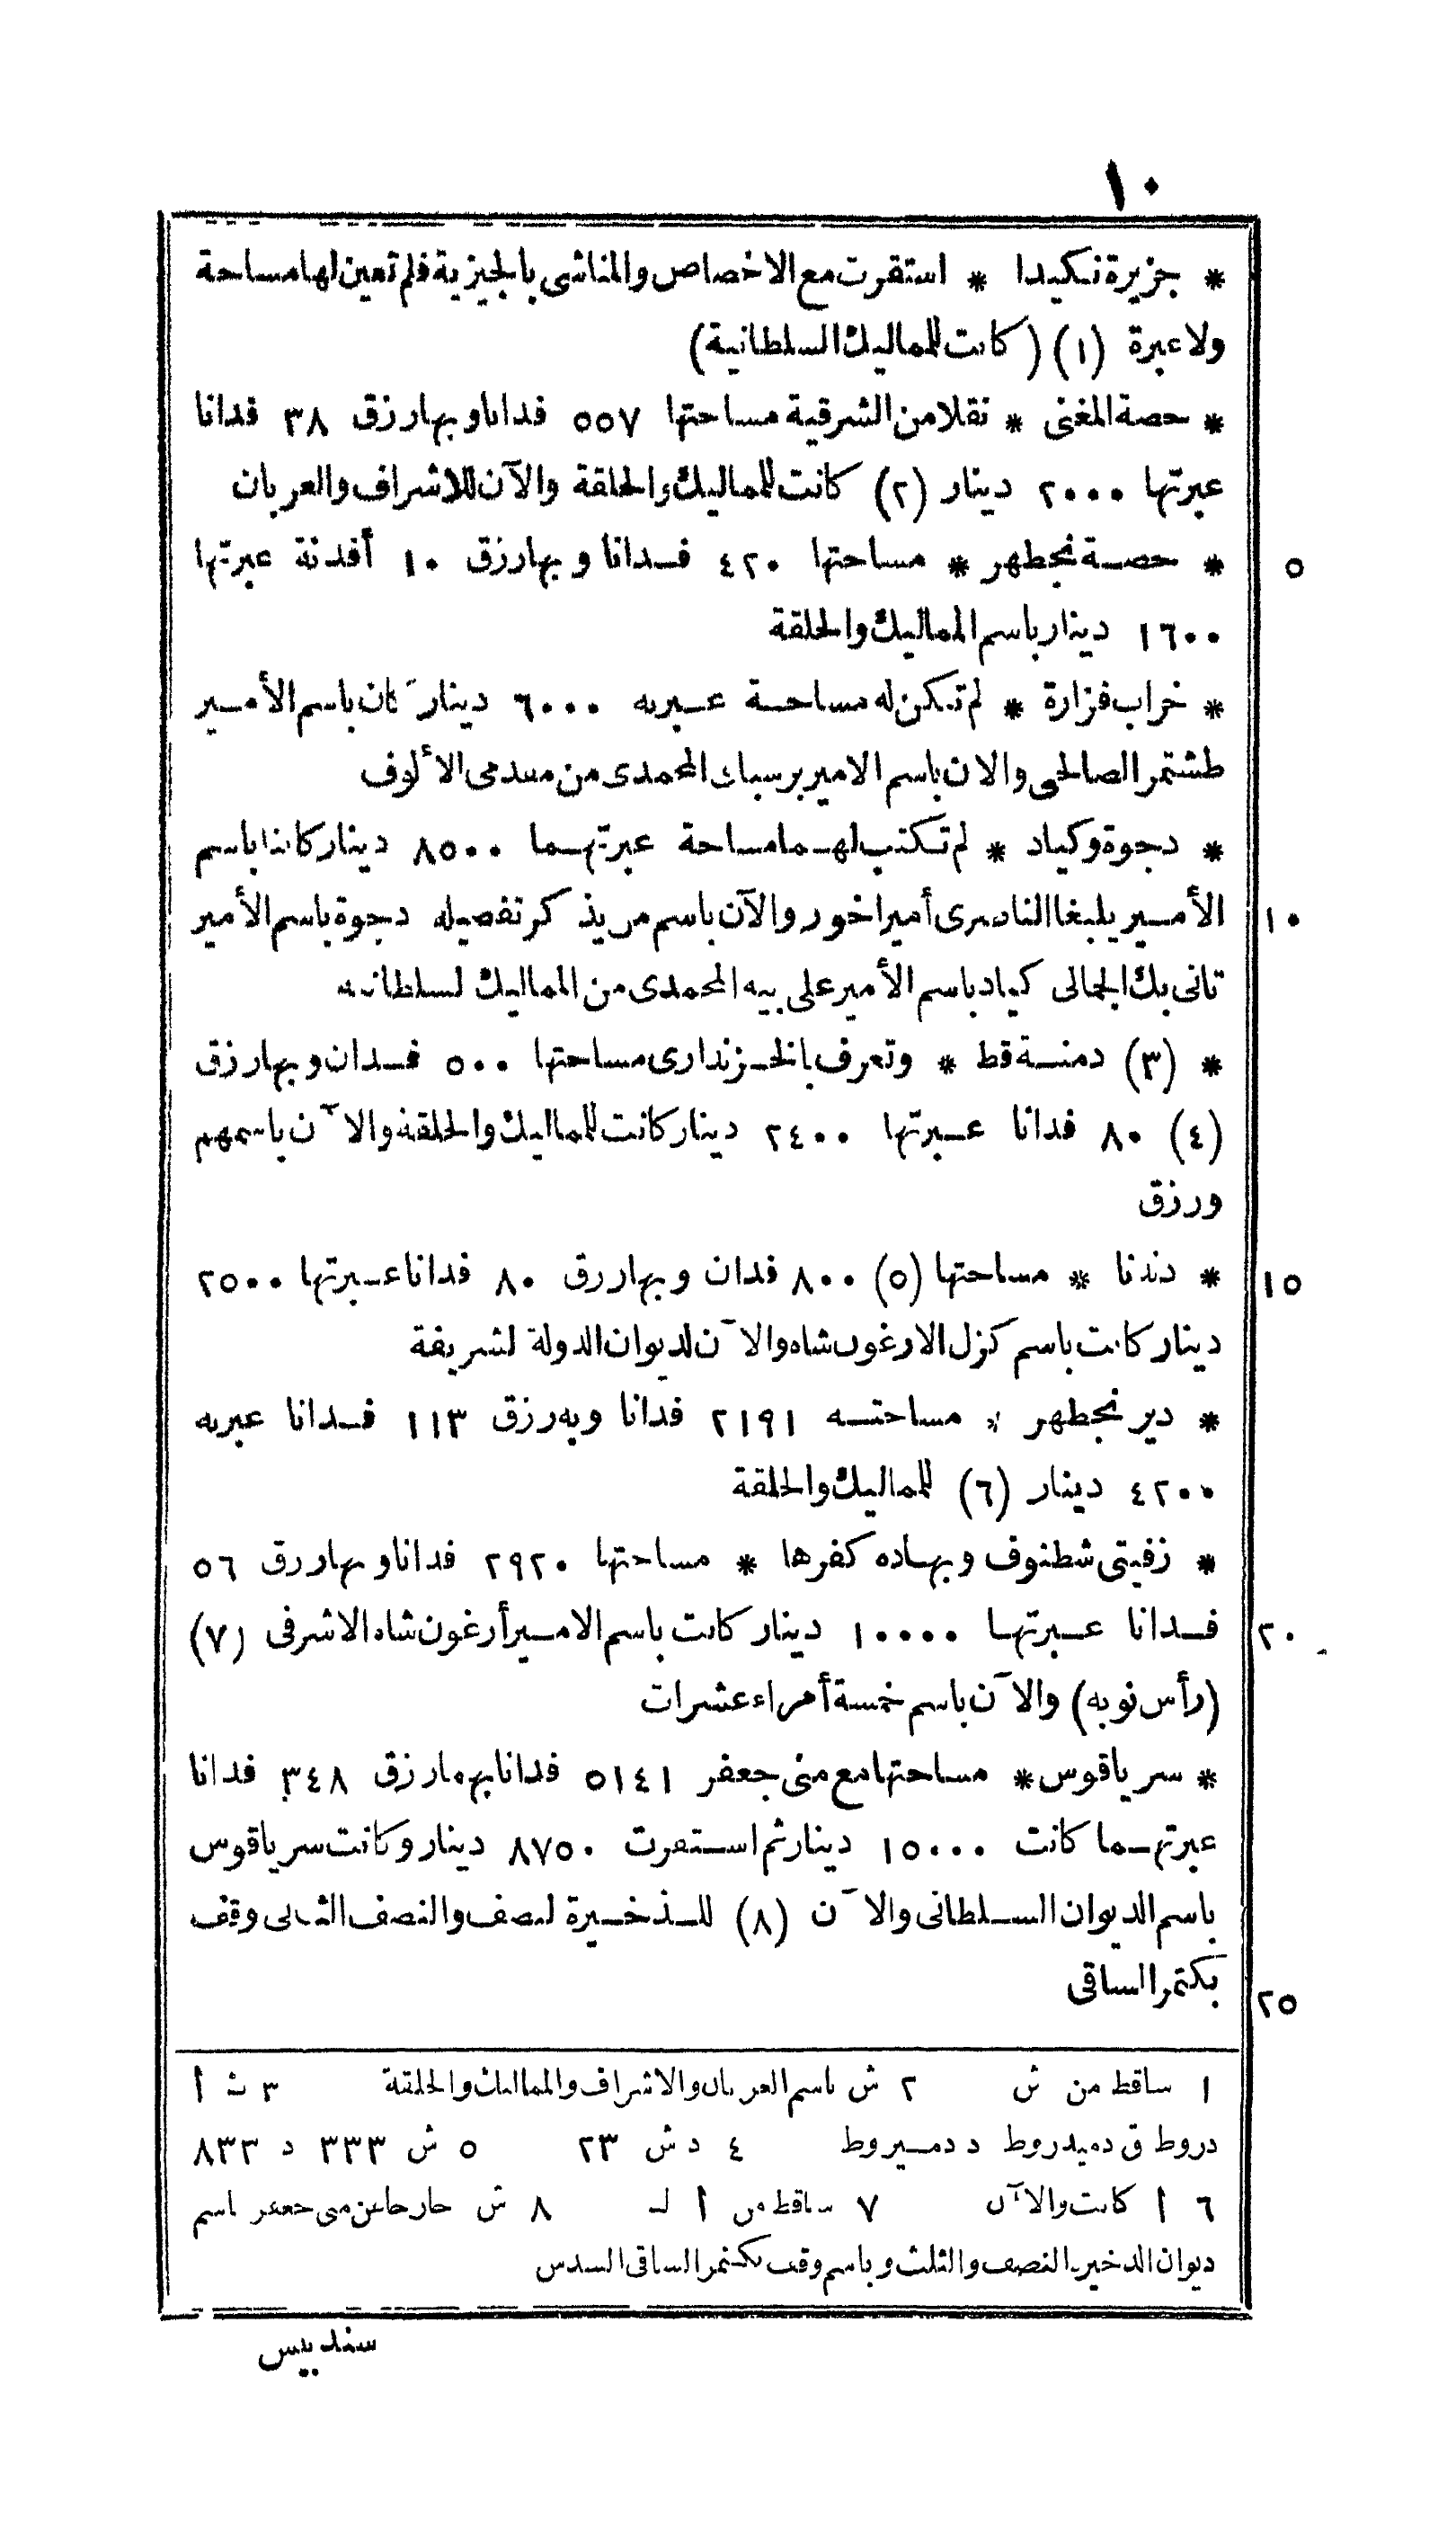 ١٠
* جزيرة نكيدا * استقرت مع الاخصاص والمناشى بالجيزية فلم تعين لها مساحة
ولا عبرة (١) (كانت للمماليك السلطانية)
* حصة المغنى * نقلا من الشرقية مساحتها ٥٥٧ فدانا وبها رزق ٣٨ فدانا
عبرتها ٢٠٠٠ دينار (٢) كانت للمماليك والحلقة والآن للاشراف والعربان
* حصة نجطهر * مساحتها ٤٢٠ فدانا وبها رزق ١٠ أفدنة عبرتها
٥
١٦٠٠ دينار باسم المماليك والحلقة
* خراب فزارة * لم تكن له مساحة عبرته ٦٠٠٠ دينار كان باسم الأمير
طشتمر الصالحى والآن باسم الامير برسباى المحمدى من مقدمى الألوف
* دجوة وكياد * لم تكتب لهما مساحة عبرتهما ٨٥٠٠ دينار كانتا باسم
الأمير يلبغا الناصرى أميراخور والآن باسم من يذكر تفصيله دجوة باسم الأمير
١٠
تانى بك الجمالى كياد باسم الأمير على بيه المحمدى من المماليك لسلطانيه
* (٣) دمنة قط * وتعرف بالخزندارى مساحتها ٥٠٠ فدان وبها رزق
(٤) ٨٠ فدانا عبرتها ٢٤٠٠ دينار كانت للمماليك والحلقة والآن باسمهم
ورزق
* دندنا * مساحتها (٥) ٨٠٠ فدان وبها رزق ٨٠ فدانا عبرتها ٢٥٠٠
١٥
دينار كانت باسم كزل الارغون شاه والآن لديوان الدولة لشريفة
* دير نجطهر * مساحته ٢١٩١ فدانا وبه رزق ١١٣ فدانا عبرته
٤٢٠٠ دينار (٦) للمماليك والحلقة
* زفيتى شطنوف وبهاده كفرها * مساحتها ٢٩٢٠ فدانا وبها رزق ٥٦
فدانا عبرتها ١٠٠٠٠ دينار كانت باسم الامير أرغون شاه الاشرفى (٧)
٢٠
(رأس نوبه) والآن باسم خمسة أمراء عشرات
* سرياقوس * مساحتها مع منى جعفر ٥١٤١ فدانا بهما رزق ٣٤٨ فدانا
عبرتهما كانت ١٥٠٠٠ دينار ثم استقرت ٨٧٥٠ دينار وكانت سرياقوس
باسم الديوان السلطانى والآن (٨) للذخيرة لنصف والنصف الثانى وقف
بكتمر الساقى
٢٥
١ ساقط من ش ٢ ش باسم العربان والاشراف والمماليك والحلقة ٣ ث أ
دروط ق دميدروط د دمسيروط ٤ د ش ٢٣ ٥ ش ٣٣٣ د ٨٣٣
٦ أ كانت والآن ٧ ساقط من أ ٨ ش منى جعفر باسم
ديوان الدخيرة النصف والثلث وباسم وقف بكتمر الساقى السدس
سندبيس